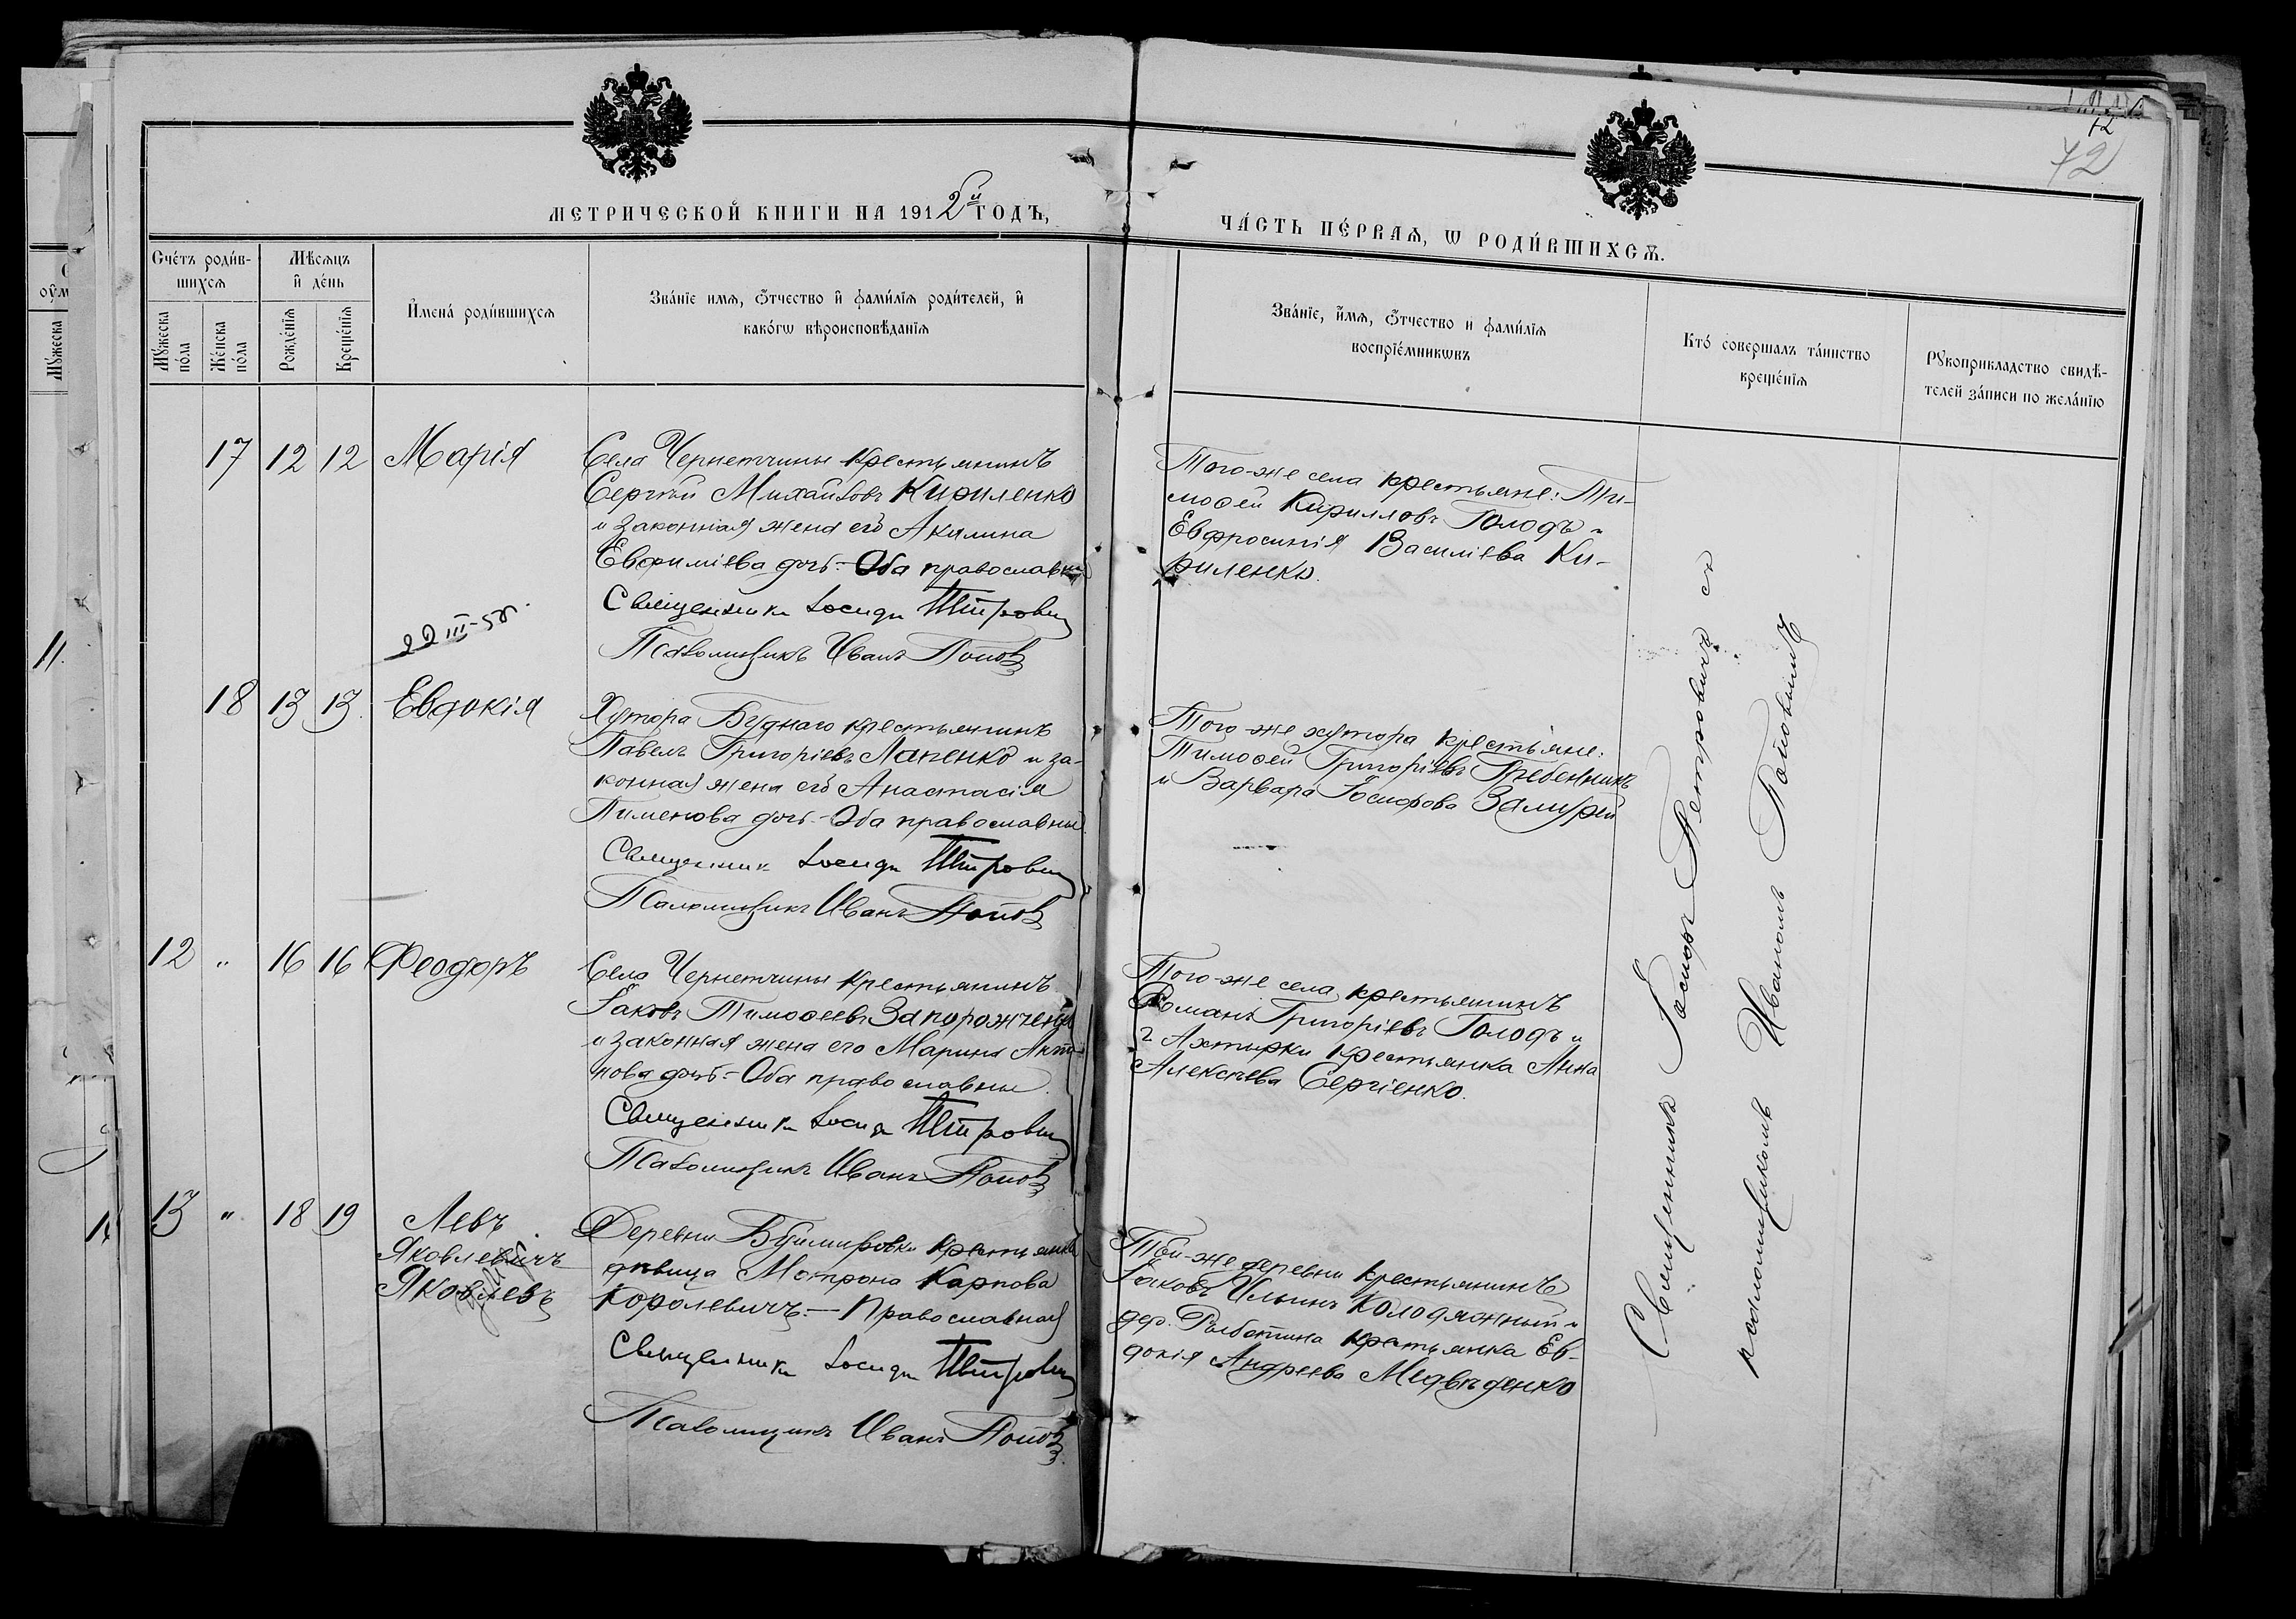 МЕТРИЧЕСКОЙ КНИГИ НА 1912й ГОДЪ,
Счетъ родив-
шихся
Мѣсяцъ
и день
Имена родившихся
Званіе имя, отчество и фамилія родителей, и
какого вѣроисповѣданія
Мужеска пола
Женска пола
Рожденія
Крещенія
17 12 12 Марія
Села Чернетчины крестьянинъ
Сергѣй Михайловъ Кириленко
и законная жена его Акилина
Евфиміева дочь.- Оба православны
Священникъ Іосифъ Петровичъ
Псаломщикъ Иванъ Поповъ
22 III-58г.
18 13 13 Евдокія
Хутора Буднаго крестьянинъ
Павелъ Григоріевъ Лапенко и за-
конная жена его Анастасія
Пименова дочь.- Оба православны.
Священникъ Іосифъ Петровичъ
Псаломщикъ Иванъ Поповъ
12 " 16 16 Феодоръ
Села Чернетчины крестьянинъ
Іаковъ Тимофеевъ Запорожченко
и законная жена его Марина Анто-
нова дочь.- Оба православны.
Священникъ Іосифъ Петровичъ
Псаломщикъ Иванъ Поповъ
13 " 18 19 Левъ
Яковлевичъ
Яковлевъ
Деревни Буймировки крестьянка
дѣвица Мотрона Карпова
Королевичъ.- Православная
Священникъ Іосифъ Петровичъ
Псаломщикъ Иванъ Поповъ
11.
72
72
ЧАСТЬ ПЕРВАЯ, Ѡ РОДИВШИХСЯ.
Званіе, имя, отчество и фамилія
воспріемниковъ
Кто совершалъ таинство
крещенія
Рукоприкладство свидѣ-
телей записи по желанію
Того-же села крестьяне: Ти-
мофей Кирилловъ Голодъ и
Евфросинія Василіева Ки-
риленко.
Того-же хутора крестьяне:
Тимофей Григоріевъ Гребенникъ
и Варвара Іосифова Замурей
Того-же села крестьянинъ
Романъ Григоріевъ Голодъ и
г Ахтырки крестьянка Анна
Алексѣева Сергіенко.
Той-же деревни крестьянинъ
Іаковъ Ильинъ Колодяжный и
дер. Рыботина крестьянка Ев-
докія Андреева Медвѣденко
Священникъ Іосифъ Петровичъ съ
псаломщикомъ Иваномъ Поповымъ